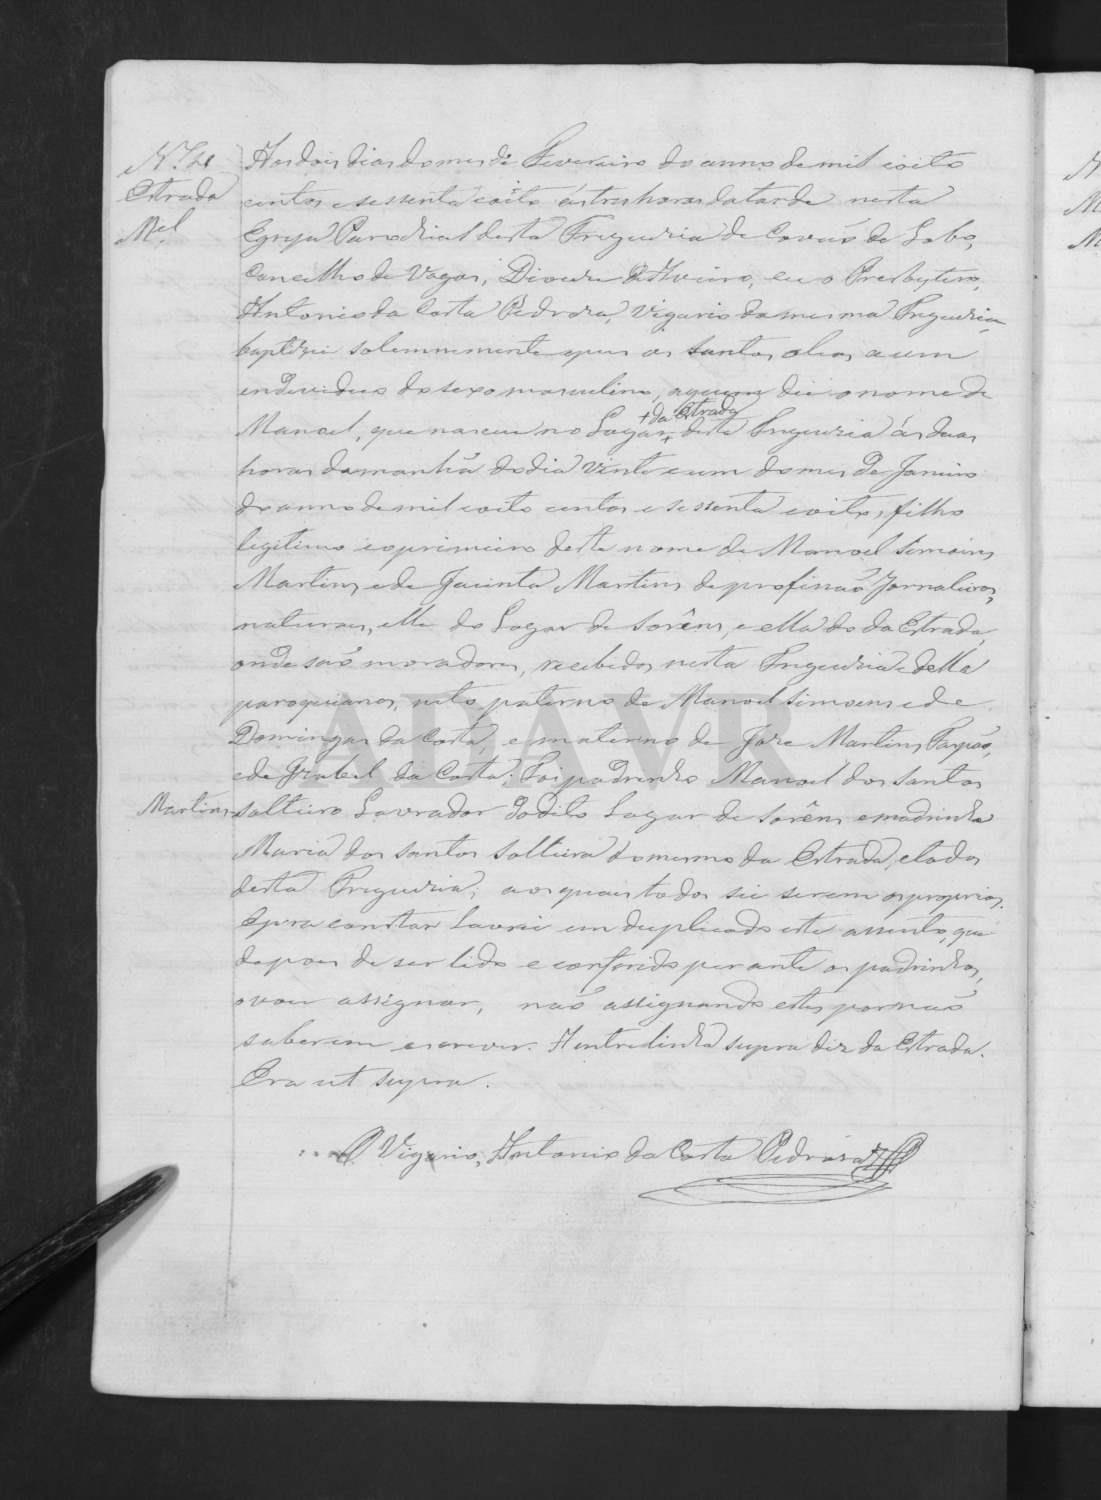 Estrada
Mel
Aos dois dias do mes de Fevereiro do anno de mil oito
centos e sessenta e oito ás tres horas da tarde nesta
Egreja Parochial desta Freguezia de Covão do Lobo,
Concelho de Vagos, Diocese d'Aveiro, eu o Presbytero,
Antonio da Costa Pedroza, Vigario da mesma Freguezia,
baptizei solemnemente e puz os santos oleos a um
individuo do sexo masculino, a quem dei o nome de
+ da Estrada
Manoel, que nasceu no Logar + desta Freguezia ás duas
horas da manhã do dia vinte e um do mes de Janeiro
do anno de mil e oito centos e sessenta e oito, filho
legitimo e o primeiro deste nome de Manoel Simoens
Martins e de Jacinta Martins de profissão Jornaleiros,
naturaes, elle do Logar de Sorêns, e ella do da Estrada,
onde são moradores, recebidos nesta Freguezia e della
paroquianos, neto paterno de Manoel Simoens e de
Domingas da Costa, e materno de Joze Martins
e de Izabel da Costa; Foi padrinho Manoel dos Santos
Martins solteiro Lavrador do dito Logar de Sorêns e madrinha
Maria dos Santos solteira do mesmo da Estrada, e todos
desta Freguezia; aos quaes todos sei serem os proprios.
E para constar lavrei em duplicado este assento, que
depois de ser lido e conferido perante os padrinhos,
o vou assignar, não assignando estes por não
saberem escrever. A entrelinha supra diz da Estrada.
Era ut supra.
O Vigario, Antonio da Costa Pedroza
ADAVR